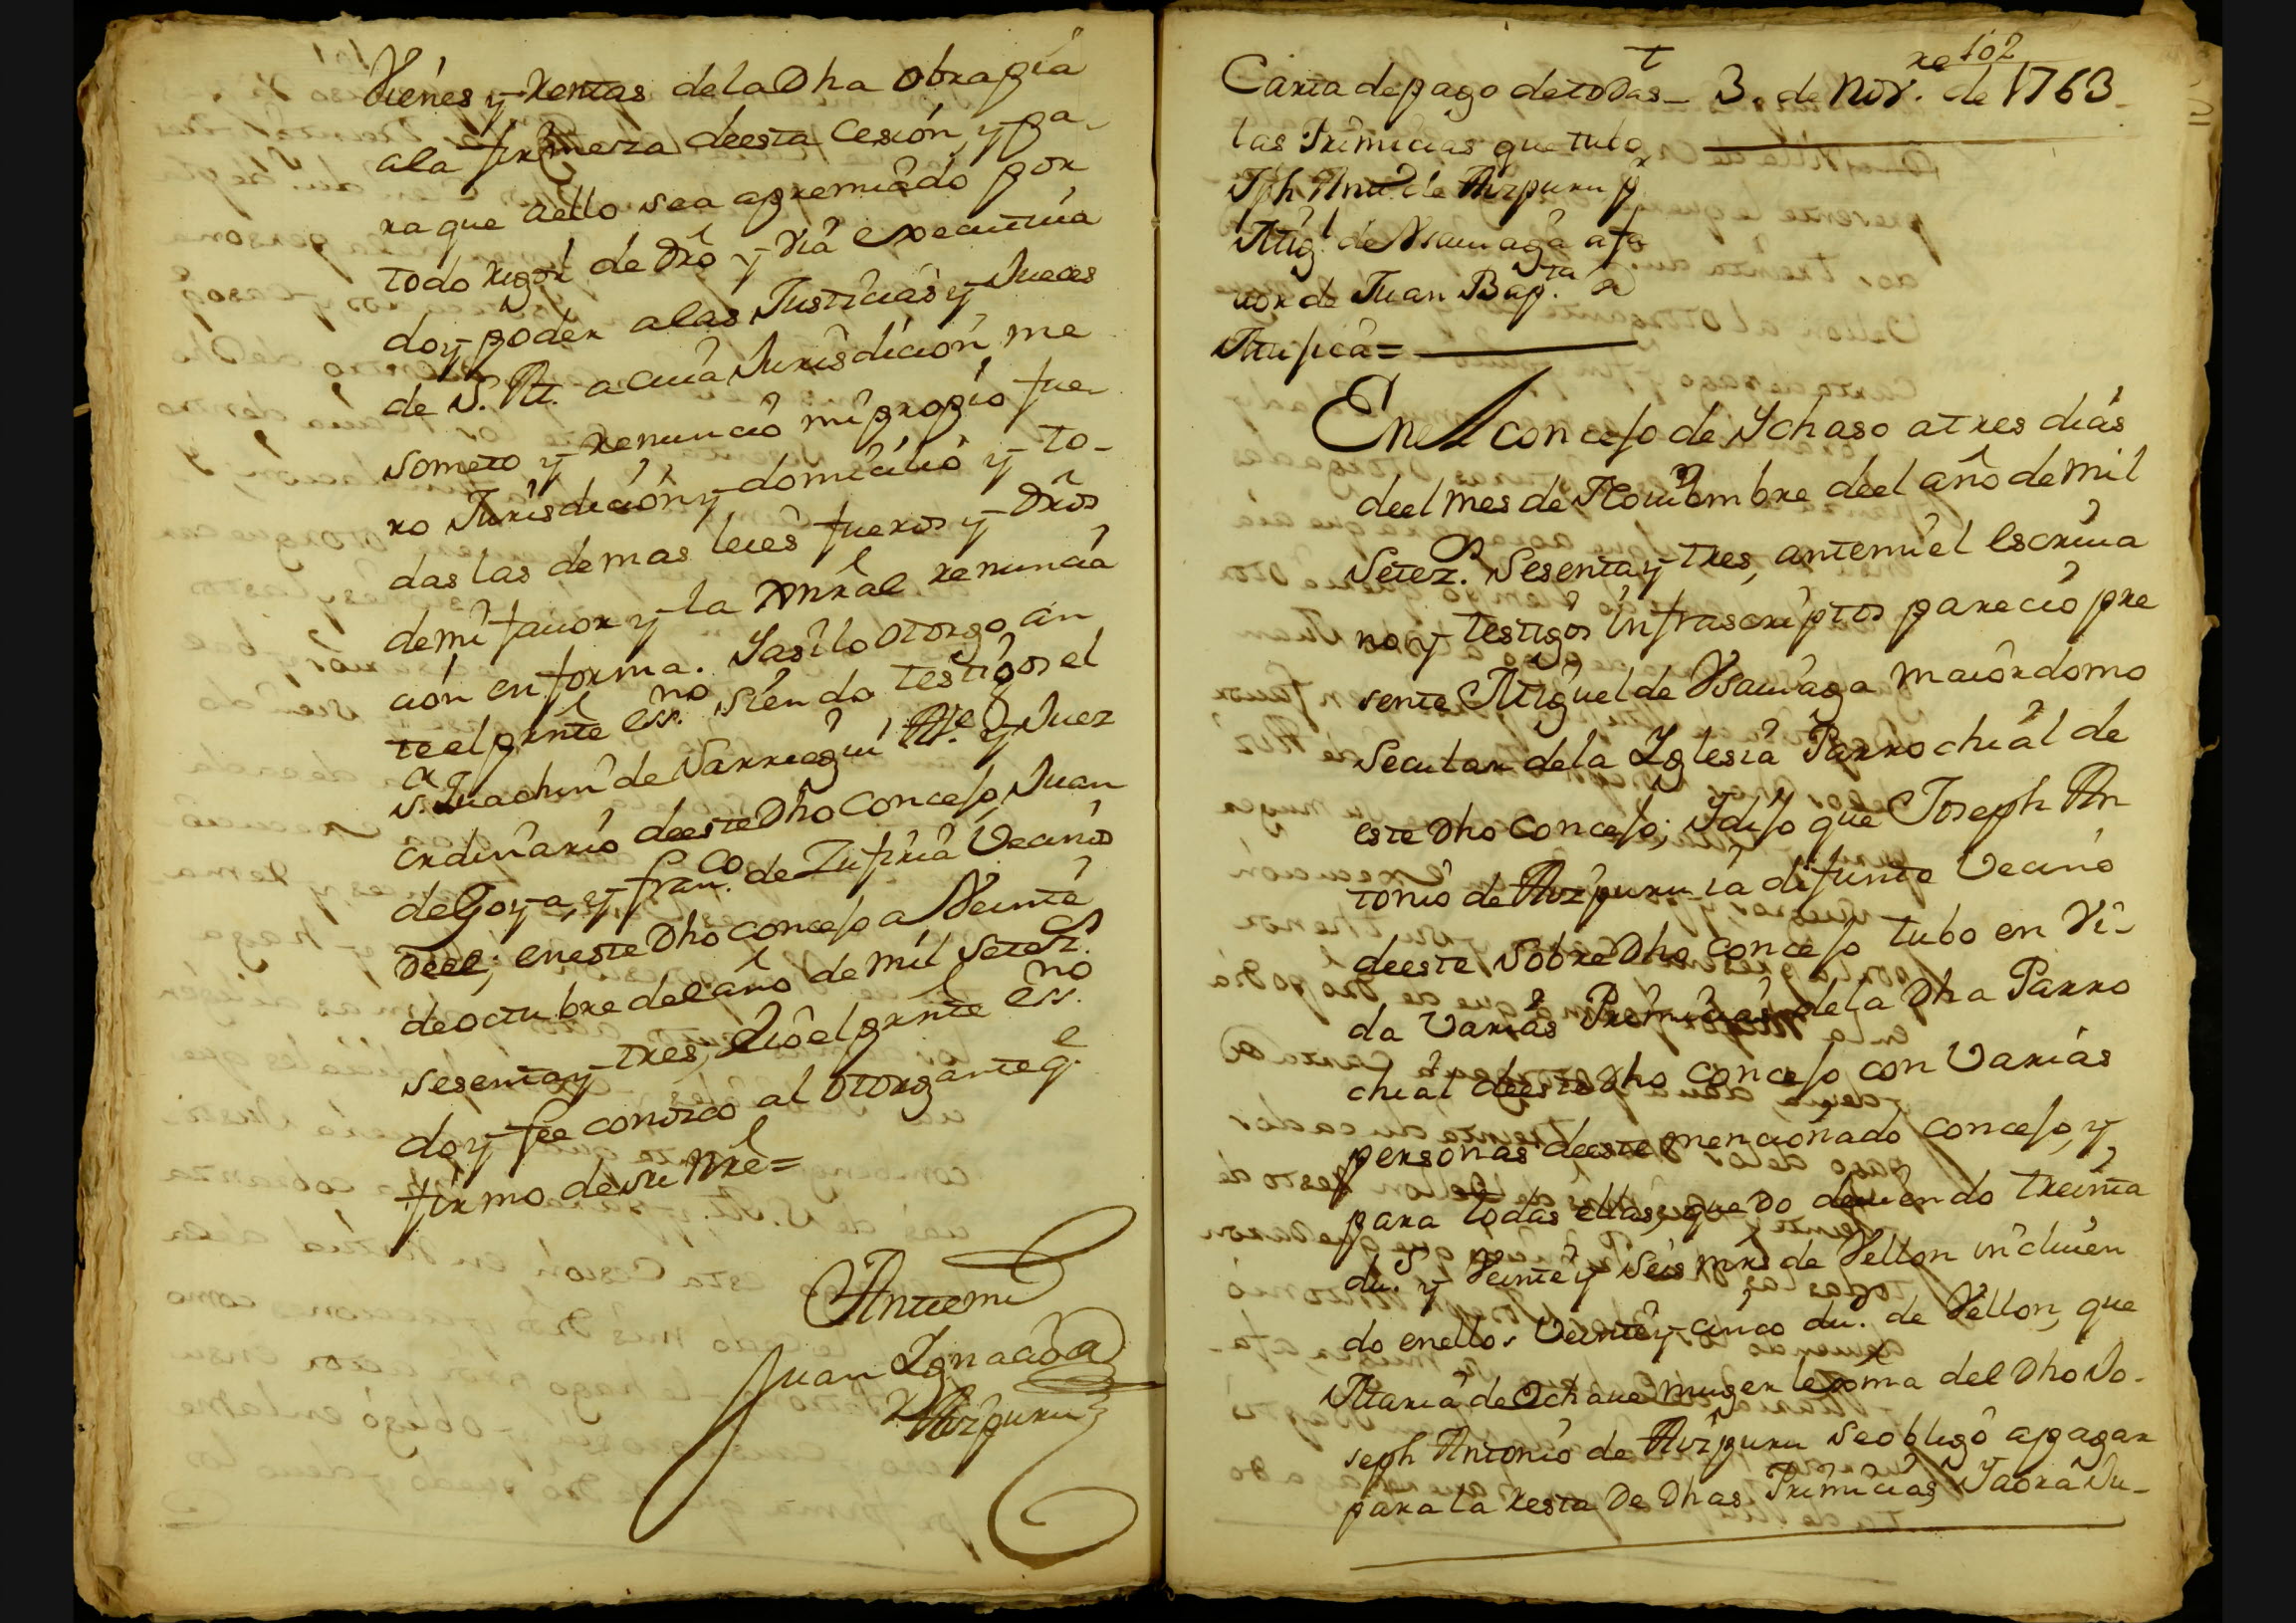 Vienes y Rentas de la Dha obrapia
a la firmeza de esta Cesion, y pa-
ra que aello sea apremiado por
todo rigor de Dro y via executiua
doy poder a las Justicias y Jueces
de S. M. a cuia Jurisdicion me
someto y renuncio mi propio fue
ro Jurisdicion y domicilio y to-
das las demas leies fueros y Dros
de mi fauor y la Gnral renuncia
cion en forma. Y asi lo otorgo an
te el pnte essno siendo testigos el
Sr. Juachin de Sarriegui Alle y Juez
ordinario de este Dho Concejo, Juan
de Goya, y Franco de Zufiria Vecinos
de el; en este Dho concejo a Veinte
de octubre del año de mil Setezs.
sesenta y tres, e Yo el pnte essno
doy fee conozco al otorgante qe
firmo de su nre=
Antemi
Juan Ignacio de
Aizpuru
102
Carta de pago de todas 3. de Novre. de 1763
las Primicias que tubo
Jph Anto de Aizpuru pr
Migl de Vsauiaga a fa
uor de Juan Bapta de
Mujica=
En el concejo de Ichaso a tres dias
de el mes de Nouiembre de el año de mil
Setezs. Sesenta y tres, ante mi el Escriua
no y testigos infrascriptos parecio pre
sente Miguel de Vsauiaga maiordomo
Secular de la Iglesia Parrochial de
este Dho Concejo; Y dijo que Joseph An
tonio de Aizpuru ia difunto Vecino
de este Sobre Dho concejo tubo en Vi-
da Varias Primicias de la Dha Parro
chial de este Dho concejo con Varias
personas de este mencionado concejo, y
para todas ellas, quedo deuiendo treinta
dus. y Veinte y Seis mrs de Vellon incluien
do en ellos Veinte y cinco dus. de Vellon, que
Maria de Echaue muger lexma del Dho Jo-
seph Antonio de Aizpuru Se obligo a pagar
para la resta de Dhas Primicias, Y aora Ju-